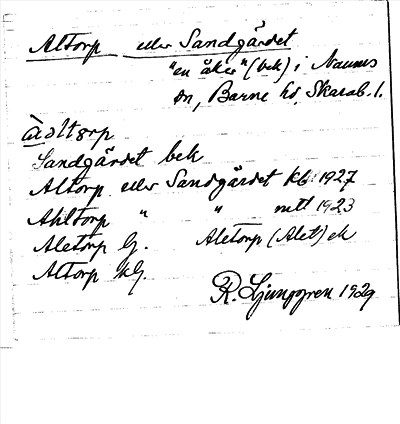 Altorp eller Sandgärdet
"en åker" (bek) i Naums
sn, Barne hd, Skarab. l.
Sandgärdet bek
Altorp eller Sandgärdet kb 1927
Ahltorp " " mtl 1923
Aletorp G. Aletorp (Alet) ek
Altorp kG.
R. Ljunggren 1929